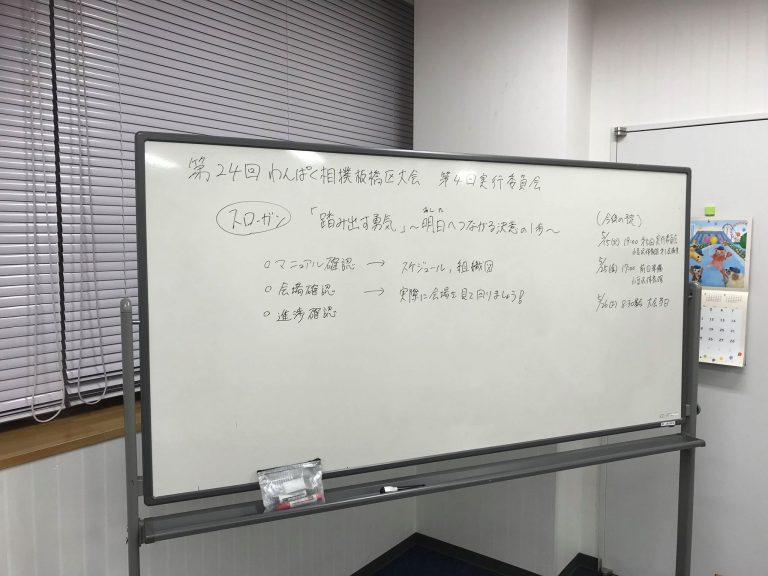 第24回 わんぱく相撲板橋区大会 第4回実行委員会
スローガン 「踏み出す勇気」～明日へつながる決意の1歩～
あした
○ マニュアル確認 → スケジュール、組織図
○ 会場確認 → 実際に会場を見て回りましょう!
○ 進捗確認
(今後の予定)
19:00 実行委員会
17:00 前日準備
8:30 大会当日